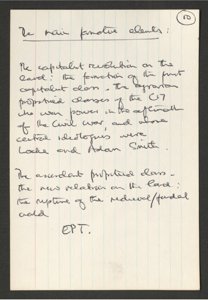 50
The main formative elements:
The capitalist revolution on the
land: the formation of the first
capitalist class - the agrarian
propertied classes of the C17
who won power in the aftermath
of the Civil War, and whose
central ideologues were
Locke and Adam Smith.
The ascendant propertied class -
the new relations on the land:
the rupture of the medieval/feudal
world
EPT.